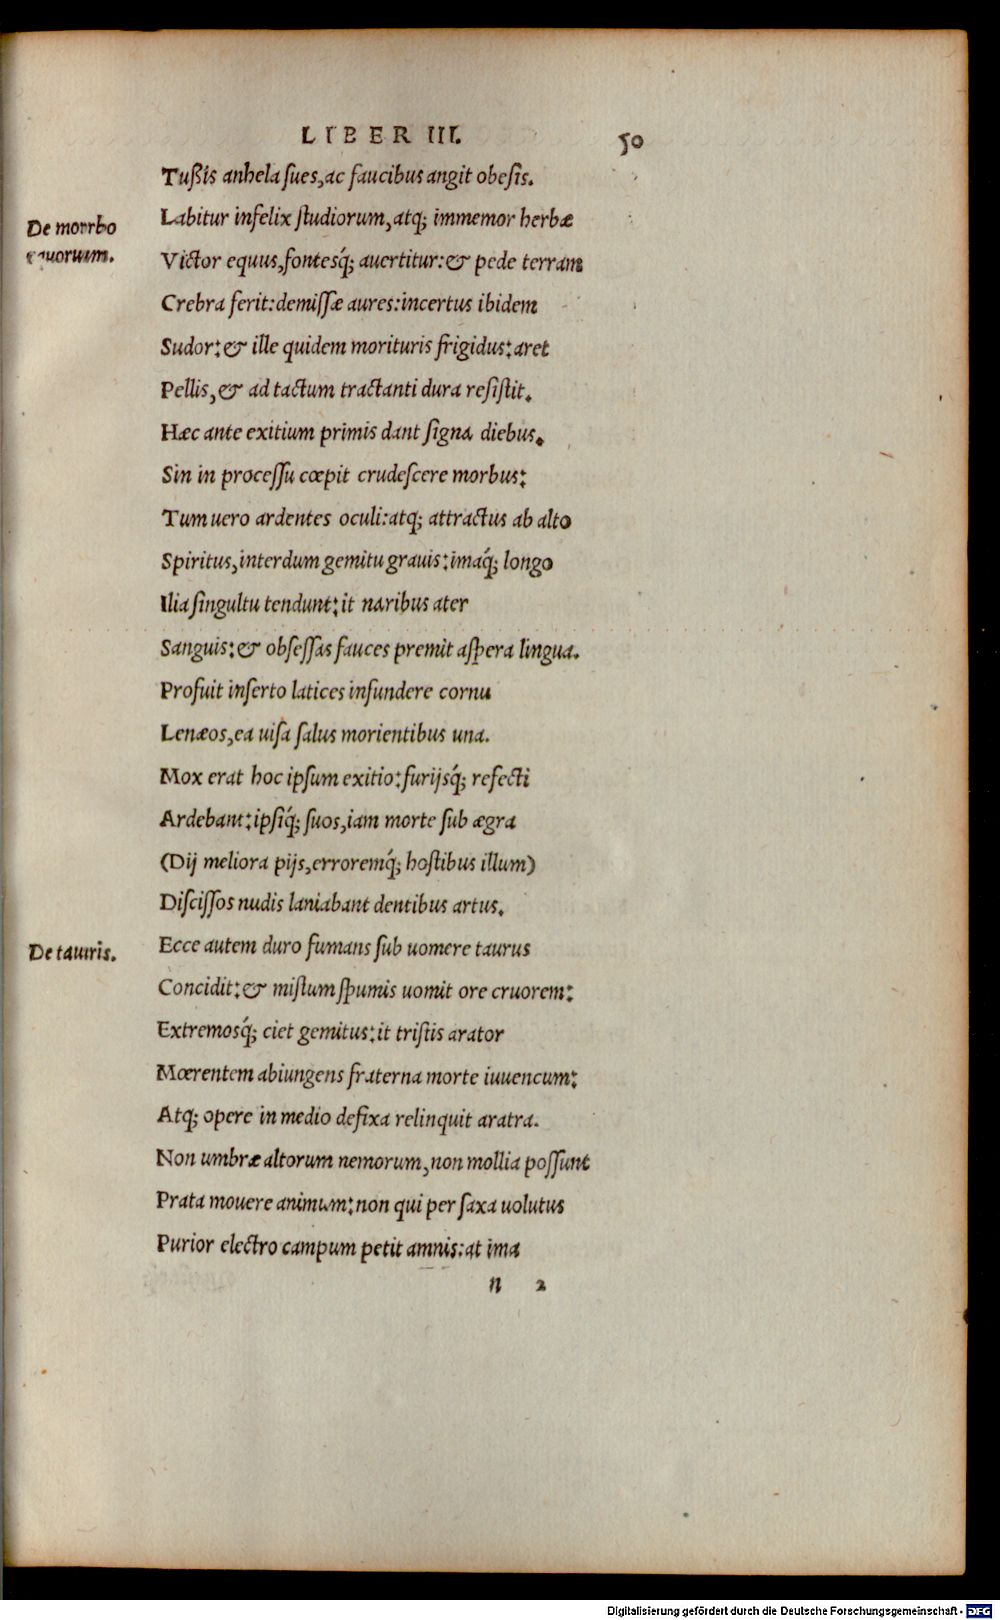 LIBER III. 50
Tußis anhela sues, ac faucibus angit obesis.
De morbo
equorum.
Labitur infelix studiorum, atq; immemor herbæ
Victor equus, fontesq́; auertitur: & pede terram
Crebra ferit: demissæ aures: incertus ibidem
Sudor: & ille quidem morituris frigidus: aret
Pellis, & ad tactum tractanti dura resistit.
Hæc ante exitium primis dant signa diebus.
Sin in processu cœpit crudescere morbus:
Tum uero ardentes oculi: atq; attractus ab alto
Spiritus, interdum gemitu grauis: imaq́; longo
Ilia singultu tendunt: it naribus ater
Sanguis: & obsessas fauces premit aspera lingua.
Profuit inserto latices infundere cornu
Lenæos, ea uisa salus morientibus una.
Mox erat hoc ipsum exitio: furijsq́; refecti
Ardebant: ipsiq́; suos, iam morte sub ægra
(Dij meliora pijs, erroremq́; hostibus illum)
Discissos nudis laniabant dentibus artus.
De tauris.
Ecce autem duro fumans sub uomere taurus
Concidit: & mistum spumis uomit ore cruorem:
Extremosq́; ciet gemitus: it tristis arator
Mœrentem abiungens fraterna morte iuuencum:
Atq; opere in medio defixa relinquit aratra.
Non umbræ altorum nemorum, non mollia possunt
Prata mouere animum: non qui per saxa uolutus
Purior electro campum petit amnis: at ima
n 2
Digitalisierung gefördert durch die Deutsche Forschungsgemeinschaft - DFG